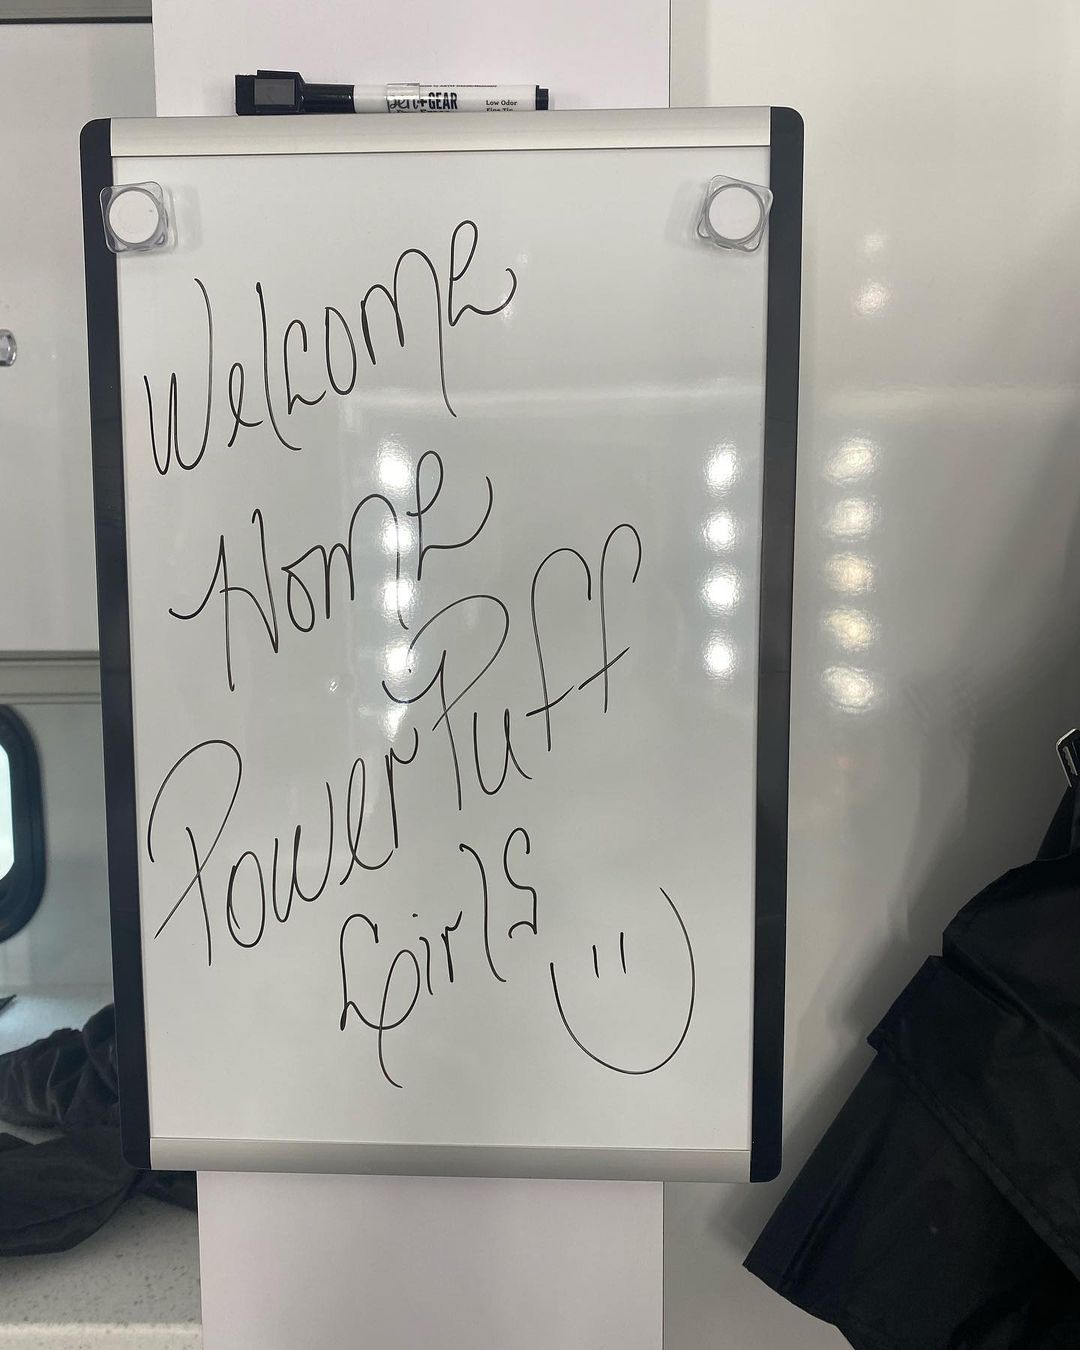 pen+GEAR
Low Odor
Fine Tip
Welcome
Home
PowerPuff
Girls